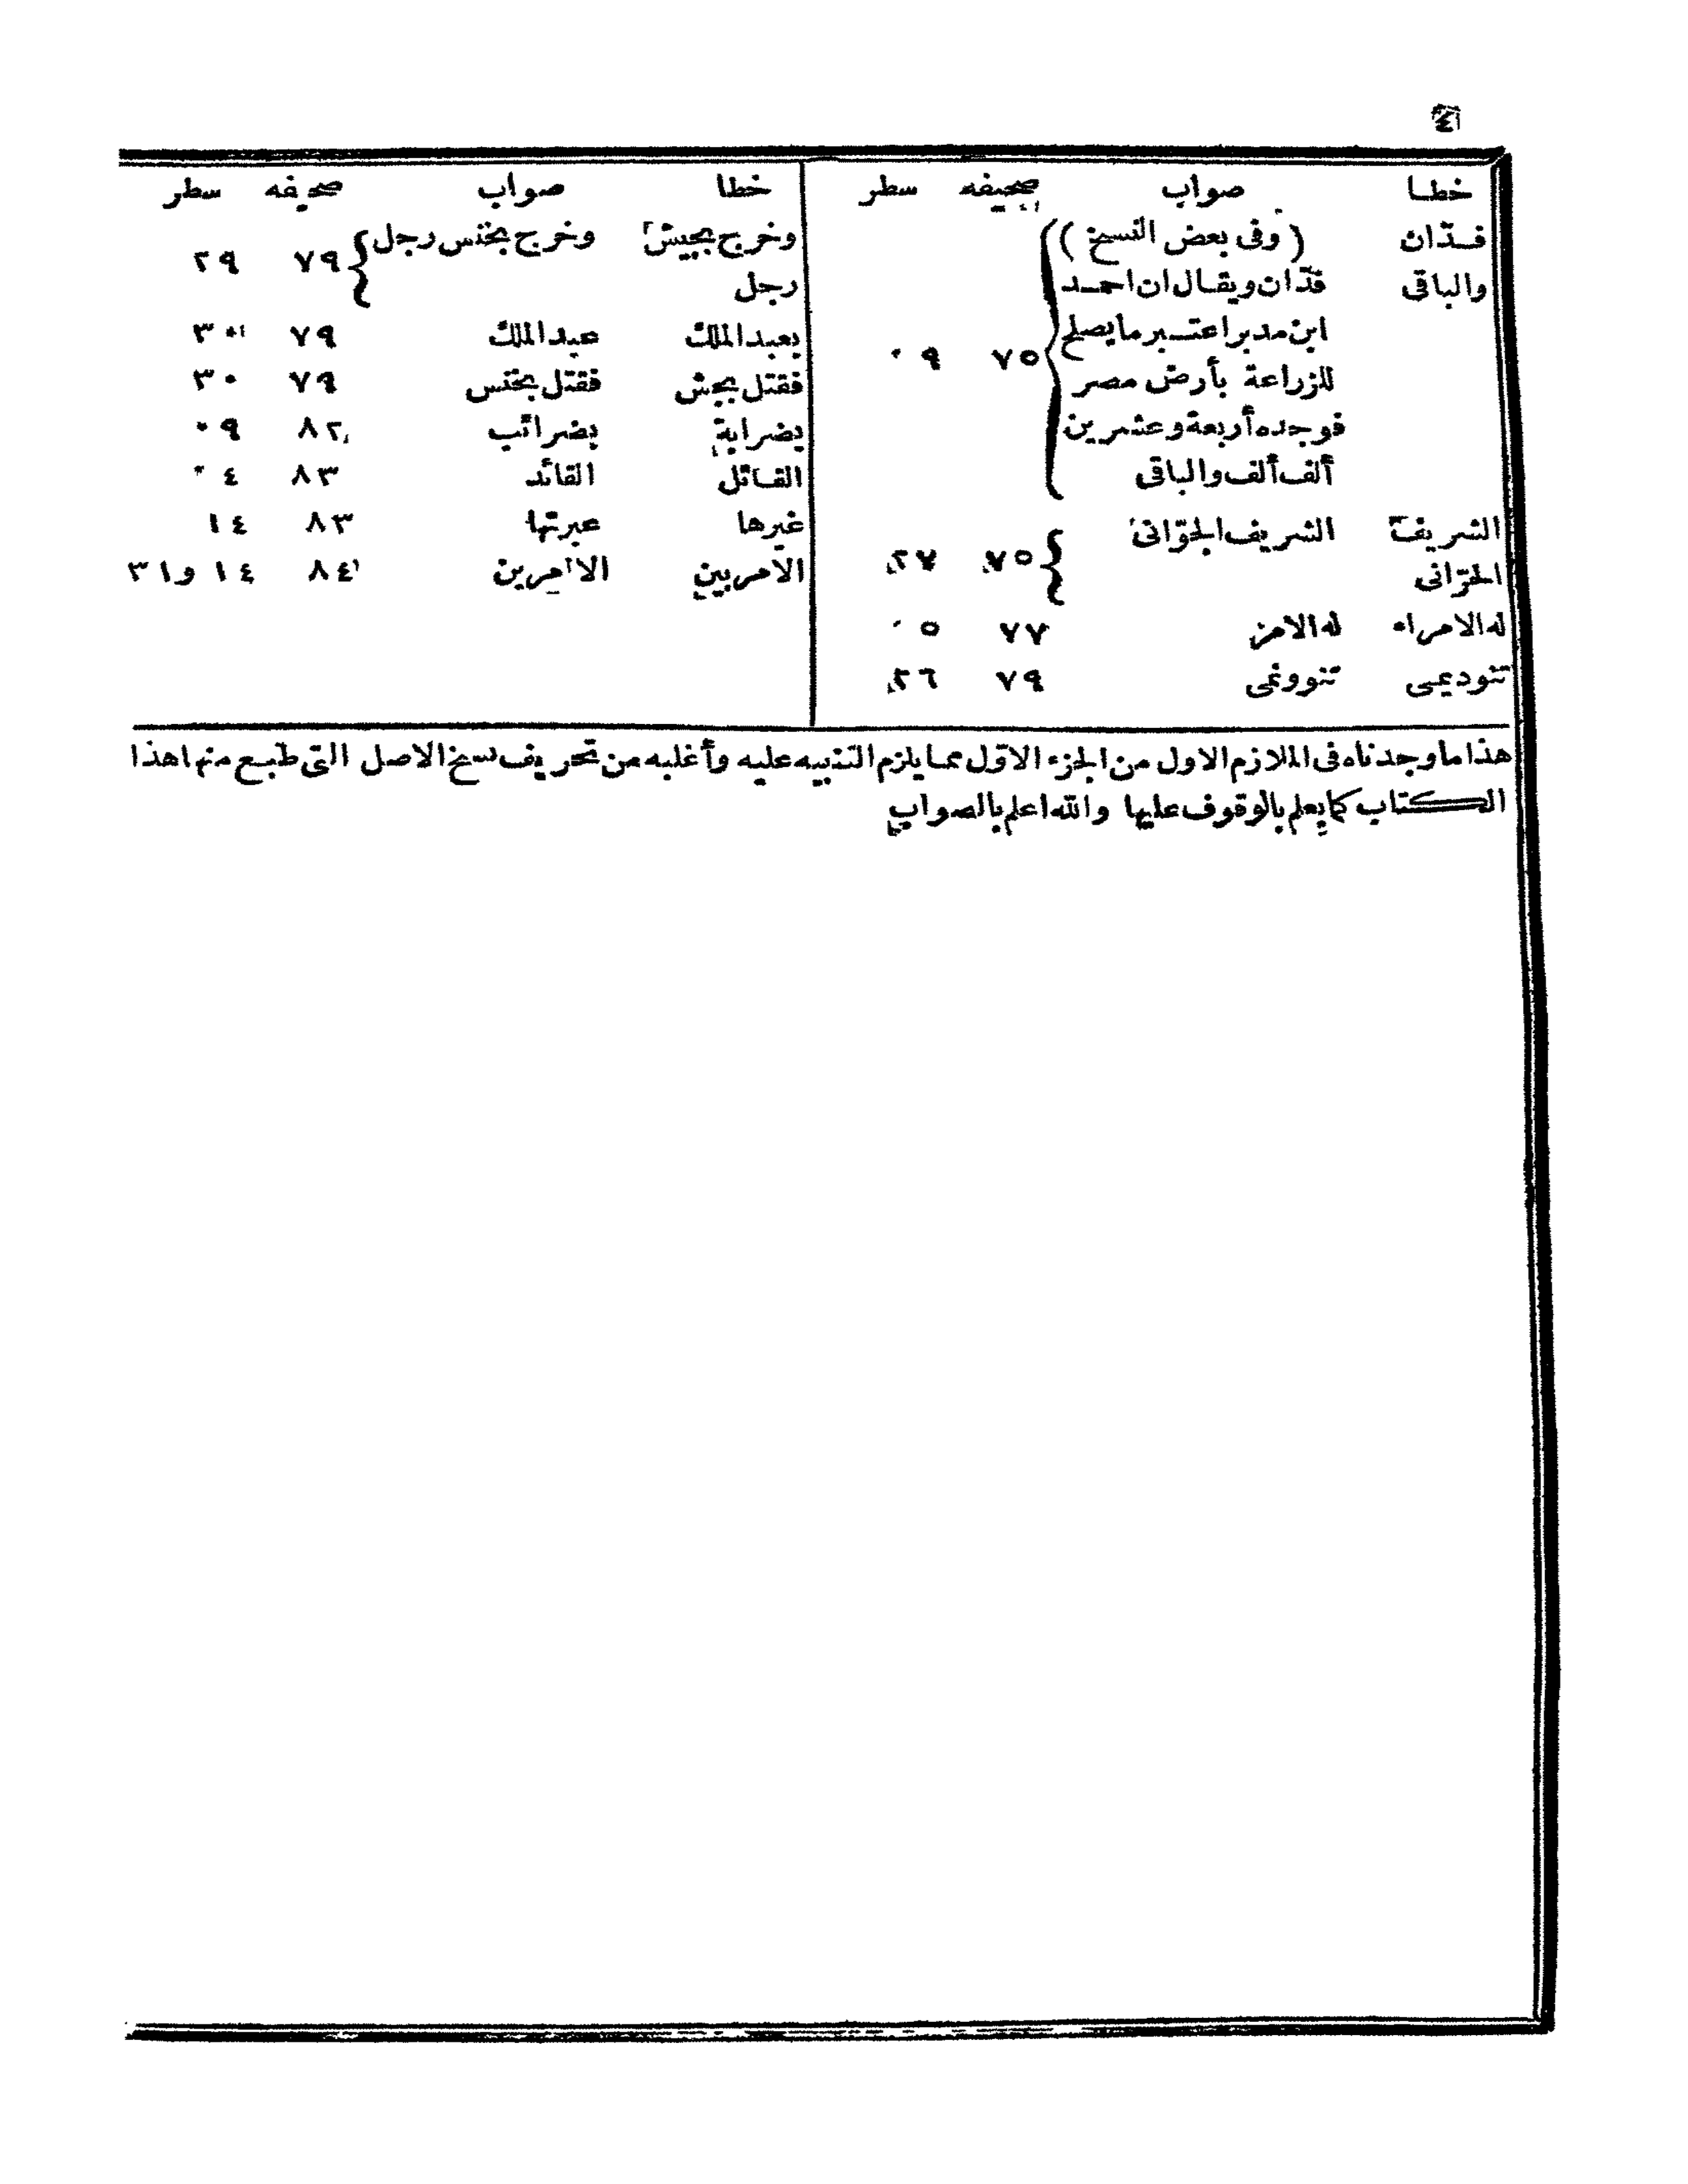 ٤
خطا صواب صحيفه سطر
فدّان (وفى بعض النسخ)
والباقى فدّان ويقال ان احمد
ابن مدبر اعتبر ما يصلح
٧٥ ٠٩
للزراعة بأرض مصر
فوجده أربعة وعشرين
ألف ألف والباقى
الشريف الشريف الجوّانى
٧٥ ٢٧
الحرّانى
له الامراء له الامر ٧٧ ٠٥
تنوديمى تنوونمى ٧٩ ٢٦
خطا صواب صحيفه سطر
وخرج بجيش وخرج بخنس رجل
٧٩ ٢٩
رجل
بعبد الملك عبد الملك ٧٩ ٣٠
فقتل بجش فقتل بخنس ٧٩ ٣٠
بضرابة بضرائب ٨٢ ٠٩
القاتل القائد ٨٣ ٠٤
غيرها عبرتها ٨٣ ١٤
الامربين الاامرين ٨٤ ١٤ و ٣١
هذا ما وجدناه فى الملازم الاول من الجزء الاوّل مما يلزم التنبيه عليه وأغلبه من تحريف نسخ الاصل التى طبع منها هذا
الكتاب كما يعلم بالوقوف عليها والله اعلم بالصواب